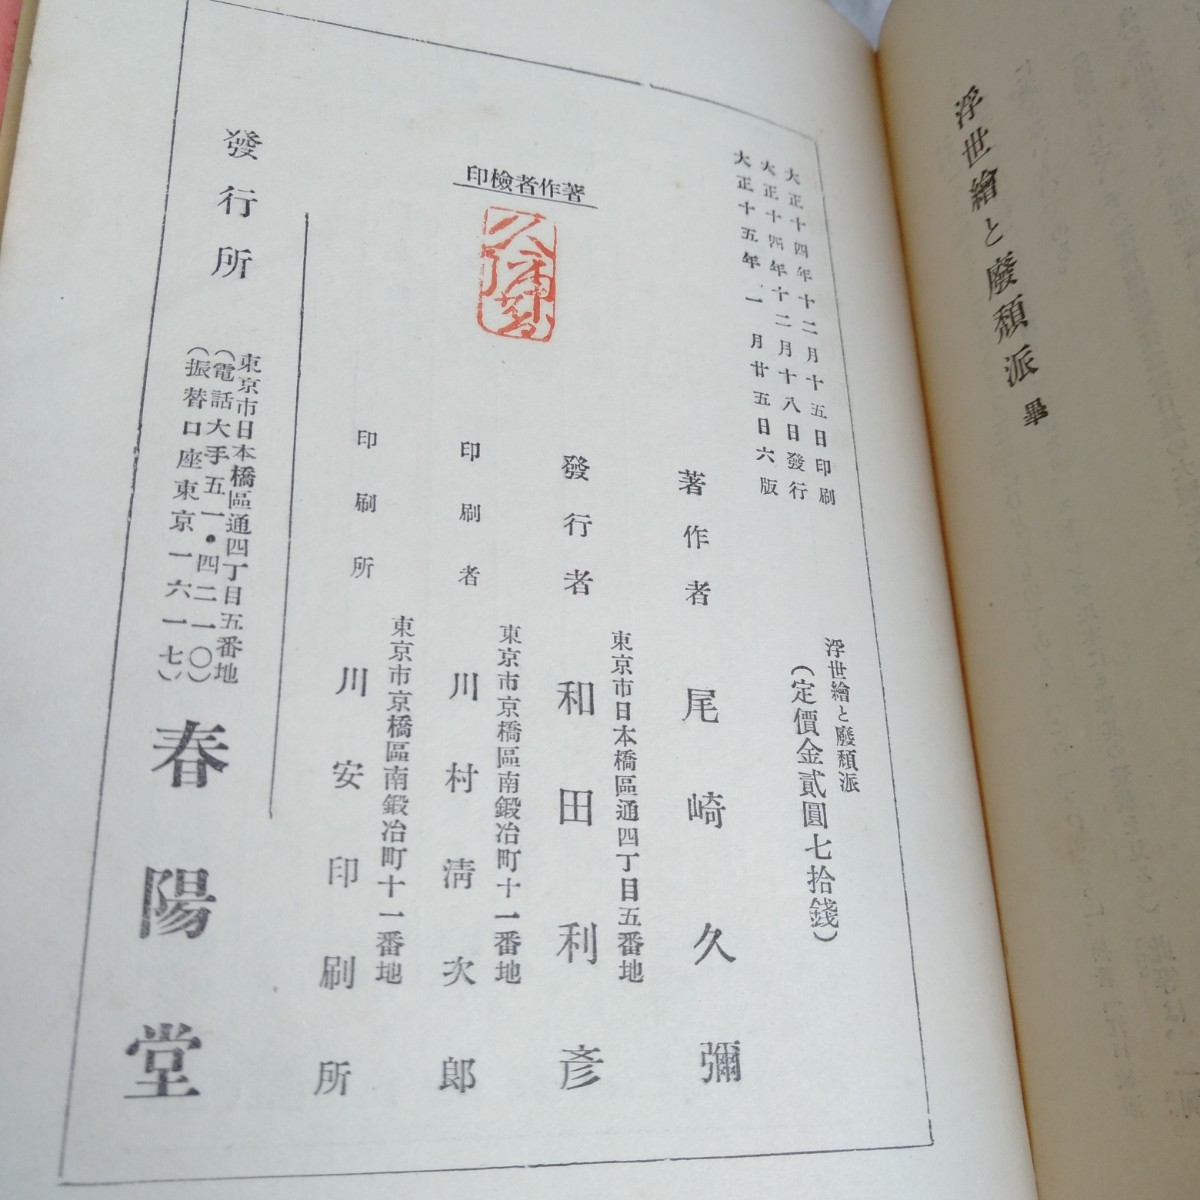 浮世繪と廢頽派 畢
大正十四年十二月十五日印刷
大正十四年十二月十八日發行
大正十五年一月廿五日六版
浮世繪と廢頽派
(定價金貳圓七拾錢)
著作者 尾崎久彌
東京市日本橋區通四丁目五番地
發行者 和田利彥
東京市京橋區南鍛冶町十一番地
印刷者 川村淸次郎
東京市京橋區南鍛冶町十一番地
印刷所 川安印刷所
印檢者作著
發行所
東京市日本橋區通四丁目五番地
(電話大手五一・四二一〇)
(振替口座東京一六一七)
春陽堂